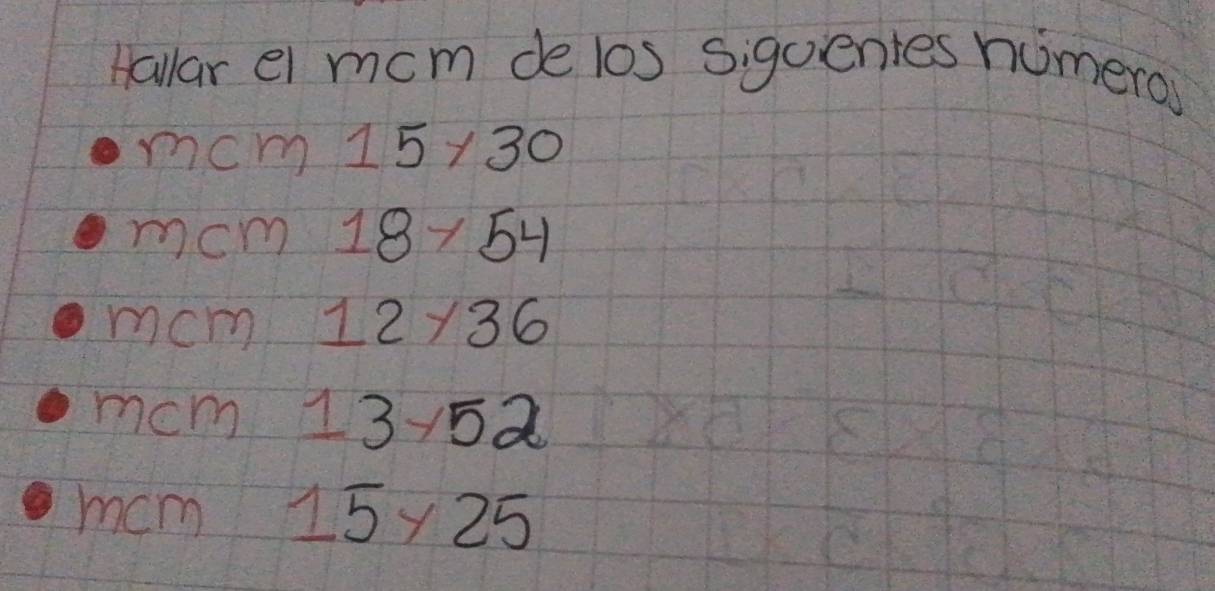 Hallar el mcm de los siguientes números
• mcm 15 y 30
• mcm 18 y 54
• mcm 12 y 36
• mcm 13 y 52
• mcm 15 y 25